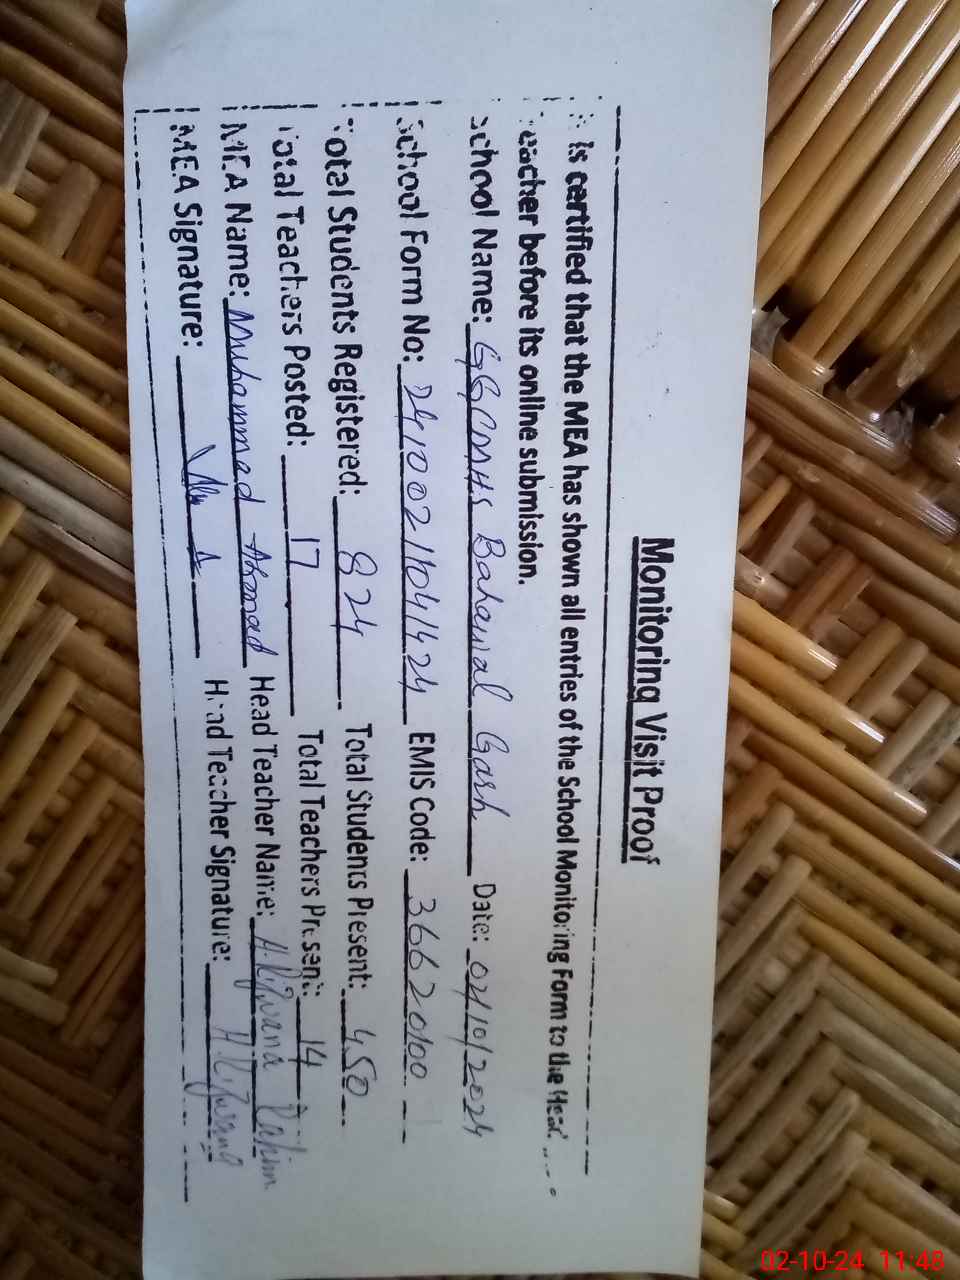 Monitoring Visit Proof
is certified that the MEA has shown all entries of the School Monitoring Form to the Head
Teacher before its online submission.
School Name: GGCMHS Bahawal Garh Date: 02/10/2024
School Form No: 24100211041424 EMIS Code: 36620100
Total Students Registered: 824 Total Students Present: 450
Total Teachers Posted: 17 Total Teachers Present: 14
MEA Name: Muhammad Ahmad Head Teacher Name: A.Rizwana Rahim
MEA Signature: Head Teacher Signature: A.Rizwana
02-10-24 11:48